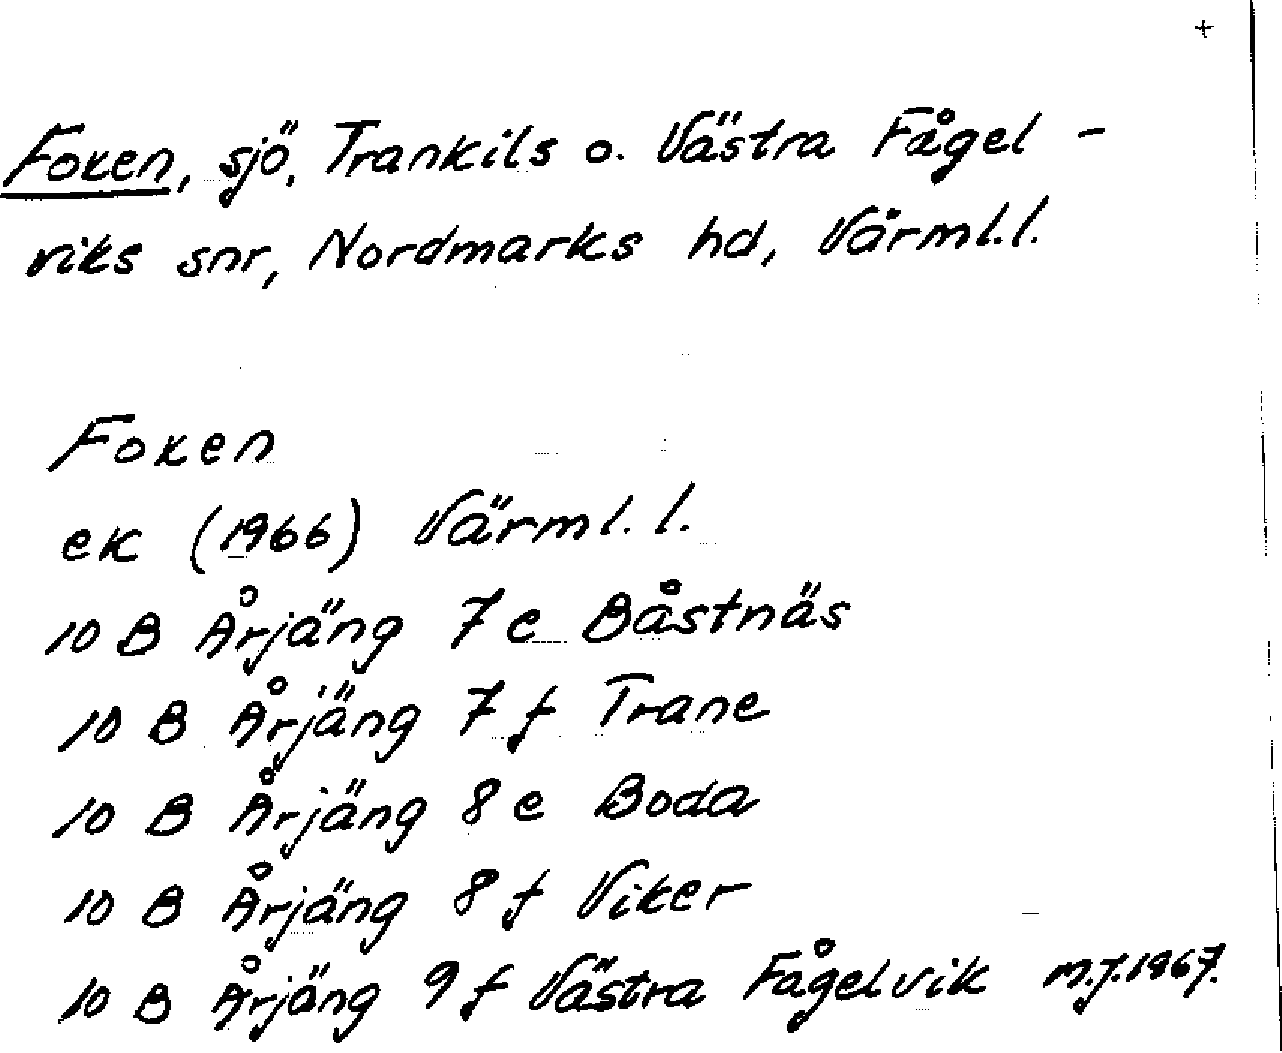 +
Foxen, sjö, Trankils o. Västra Fågel-
viks snr, Nordmarks hd, Värml.l.
Foxen
ek (1966) Värml.l.
10 B Årjäng 7 e Båstnäs
10 B Årjäng 7 f Trane
10 B Årjäng 8 e Boda
10 B Årjäng 8 f Viker
10 B Årjäng 9 f Västra Fågelvik M.J.1967.